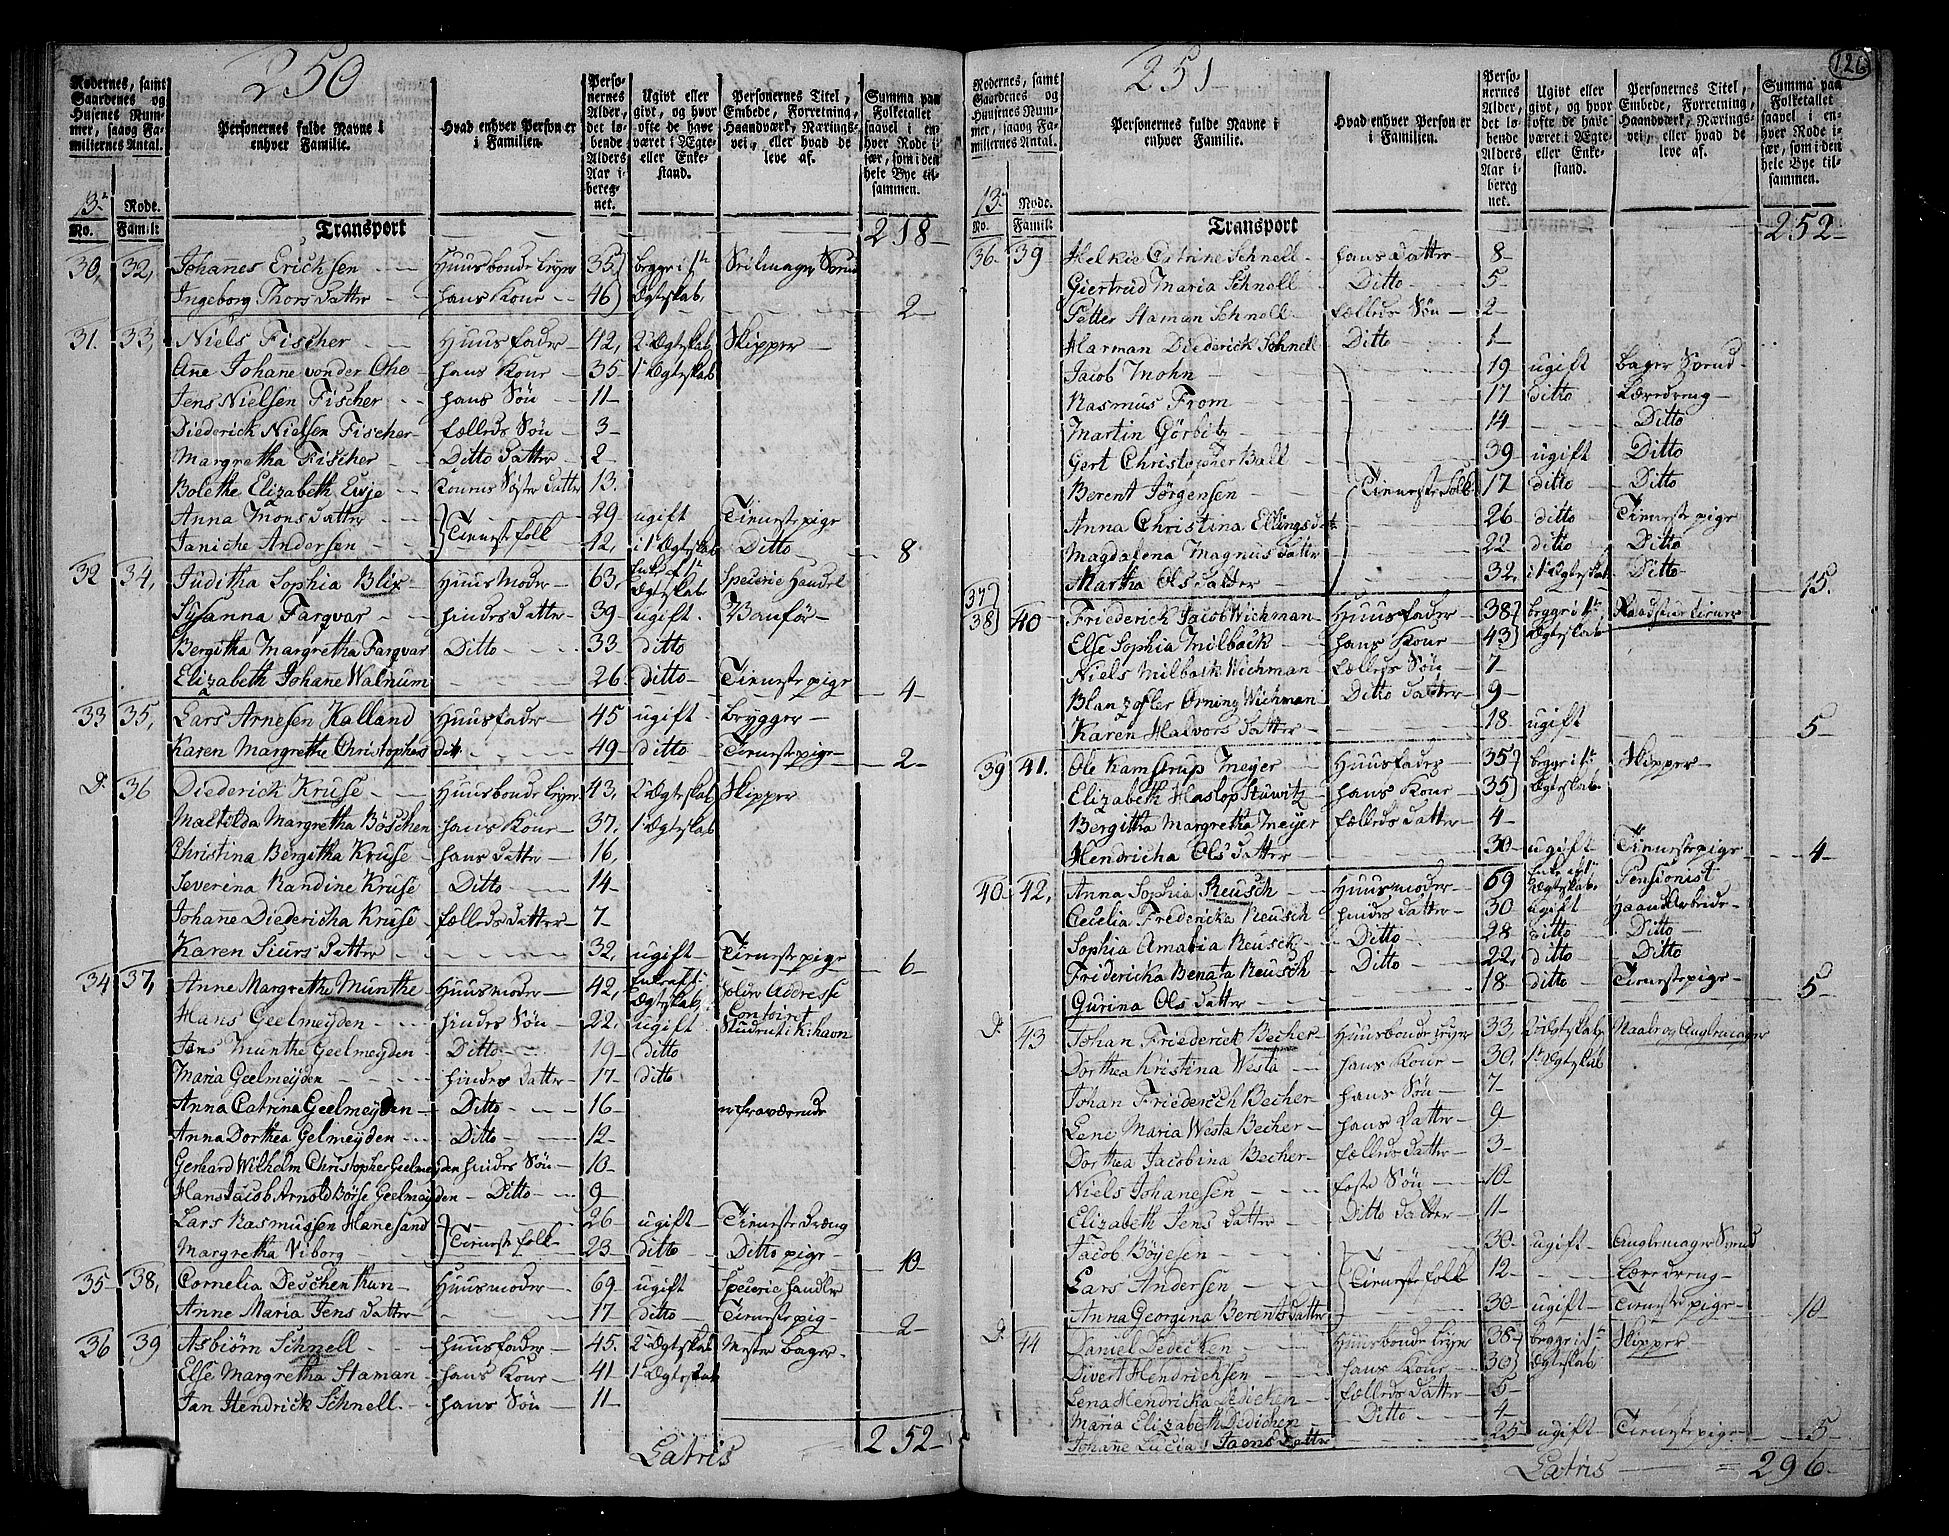 250
Rodernes, samt Gaardenes og Husenes Nummer, saavog Familiernes Antal.
Personernes fulde Navne i enhver Familie.
Hvad enhver Person er i Familien.
Personernes Alder, det løbende Alders Aar iberegnet.
Ugivt eller givt, og hvor ofte de have været i Ægte- eller Enkestand.
Personernes Titel, Embede, Forretning, Haandværk, Næringsvei, eller hvad de leve af.
Summa paa Folketallet saavel i enhver Rode især, som i den hele Bye tilsammen.
13 Rode.
No. Famil: Transport 218
30, 32, Johannes Ericksen Huusbonde Leyer 35 begge i 1te Seilmager Svend
Ingeborg Thorsdatter hans Kone 46 Ægteskab 2
31. 33, Niels Fischer Huusfader 42, 2 Ægteskab Skipper
Ane Johane von der Ohe hans Kone 35 1 Ægteskab
Jens Nielsen Fischer hans Søn 11
Diederick Nielsen Fischer fælleds Søn 3
Margretha Fischer Ditto datter 2
Bolethe Elizabeth konens Søster datter 13.
Anna Monsdatter Tieneste folk 29 ugift Tienestepige
Janiche Andersen 42, i 1te Ægteskab Ditto 8
32 34, Juditha Sophia Blix Huusmoder 63, Enke af 1te Ægteskab Specerie Handel
Susanna Farqvar hindes datter 39 ugift
Bergitha Margretha Farqvar Ditto 33 ditto
Elizabeth Johane Walnum 26 ditto Tienestepige 4
33 35, Lars Arnesen Kalland Huusfader 45 ugift Brygger
Karen Margrethe Christophersdatr 49 ditto Tienestepige 2
D. 36 Diederick Kruse Huusbonde Leyer 43, 2 Ægteskab Skipper
Maltilda Margretha Böschen hans Kone 37, 1 Ægteskab
Christina Bergitha Kruse hans datter 16,
Severina Randine Kruse Ditto 14
Johane Diedericha Kruse fælleds datter 7
Karen Siursdatter 32, ugift Tienestepige 6
34 37, Anne Margrethe Munthe Huusmoder 42, Enke af 1 Ægteskab holder Addresse Contoiret
Hans Geelmeyden hindes Søn 22, ugift Student i K:havn
Jens Munthe Geelmeyden Ditto 19 ditto
Maria Geelmeyden hindes datter 17 ditto
Anna Catrina Geelmeyden Ditto 16 er fraværende
Anna Dorthea Gelmeyden Ditto 12
Gerhard Wilholm Christopher Geelmeyden hindes Søn 10
Hans Jacob Arnold Börse Geelmeyden Ditto 9
Lars Rasmussen Hanesand Tieneste folk 26 ugift Tieneste Dreng
Margretha Viborg 23 ditto Ditto pige 10
35 38, Cornelia Deschenthun Huusmoder 69 ugift Specerie handler
Anne Maria Jensdatter 17 ditto Tienestepig 2
36 39 Asbiörn Schnell huusfader 45. 2 Ægteskab Mester bager
Else Margretha Haman hans Kone 41 1 Ægteskab
Jan Hendrick Schnell hans Søn 11
Latris 252
251
126
Rodernes, samt Gaardenes og Husenes Nummer, saavog Familiernes Antal.
Personernes fulde Navne i enhver Familie.
Hvad enhver Person er i Familien.
Personernes Alder, det løbende Alders Aar iberegnet.
Ugivt eller givt, og hvor ofte de have været i Ægte- eller Enkestand.
Personernes Titel, Embede, Forretning, Haandværk, Næringsvei, eller hvad de leve af.
Summa paa Folketallet saavel i enhver Rode især, som i den hele Bye tilsammen.
13 Rode.
No. Famil: Transport 252
36 39 Helkie Catrine Schnell hans datter 8
Giertrud Maria Schnell Ditto 5
Petter Haman Schnell fælleds Søn 2
Harman Diederick Schnell Ditto 1
Jacob Mohn 19 ugift bager Svend
Rasmus From 17 ditto Læredreng
Martin Görbitz 14 Ditto
Gert Christopher Ball 39 ugift Ditto
Berent Jörgensen Tieneste folk 17 ditto Ditto
Anna Christina Ellingsdatr 26 ditto Tienestepige
Magdalena Magnusdatter 22 ditto Ditto
Martha Olsdatter 32, i 1te Ægteskab Ditto 15.
37
38 40 Friederick Jacob Wichman Huusfader 38 begge i 1te Raadstue tiener
Else Sophia Milback hans Kone 43 Ægteskab
Niels Milback Wichman fælleds Søn 7
Blanzofler Örning Wichman Ditto datter 9
Karen Halvorsdatter 18 ugift 5
39 41. Ole Kamstrup Meyer Huusfader 35 begge i 1te Skipper
Elizabeth Haslop Stüwitz hans Kone 35 Ægteskab
Bergitha Margretha Meyer fælleds datter 4
Hendricha Olsdatter 30 ugift Tienestepige 4
40 42, Anna Sophia Reusch Huusmoder 69 Enke af 1te Ægteskab Pensionist
Cecilia Fredericka Reusch hindes datter 30 ugift haand Arbeide
Sophia Amalia Reusch Ditto 28 ditto Ditto
Fridericka Benata Reusch Ditto 22, ditto Ditto
Gurina Olsdatter 18 ditto Tienestepige 5
D. 43 Johan Friederick Becher Huusbonde Leyer 33, 2 Ægteskab Naale og Anglemager
Dorthea Kristina Westa hans Kone 30, 1te Ægteskab
Johan Friederich Becher hans Søn 7
Lene Maria Westa Becher hans datter 9
Dorthea Jacobina Becher fælleds datter 3
Niels Johanesen foster Søn 10
Elizabeth Jensdatter Ditto datter 11
Jacob Böyesen Tieneste folk 30 ugift Anglemager Svend
Lars Andersen 12 Læredreng
Anna Georgina Berentsdatter 30 ugift Tienestepige 10
D. 44 Daniel Dedicken Huusbonde Leyer 38 begge i 1te Skipper
Divert Hendricksen hans Kone 30 Ægteskab
Lena Hendricka Dedicken fælleds datter 5
Maria Elizabeth Dedichen Ditto 4
Johane Lucia Jaensdatter 25 ugift Tienestepige 5
Latris 296